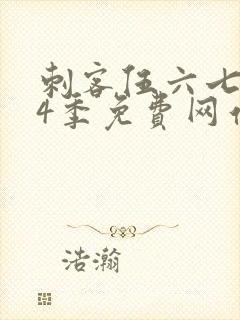 刺客伍六七
4季免费网
浩瀚